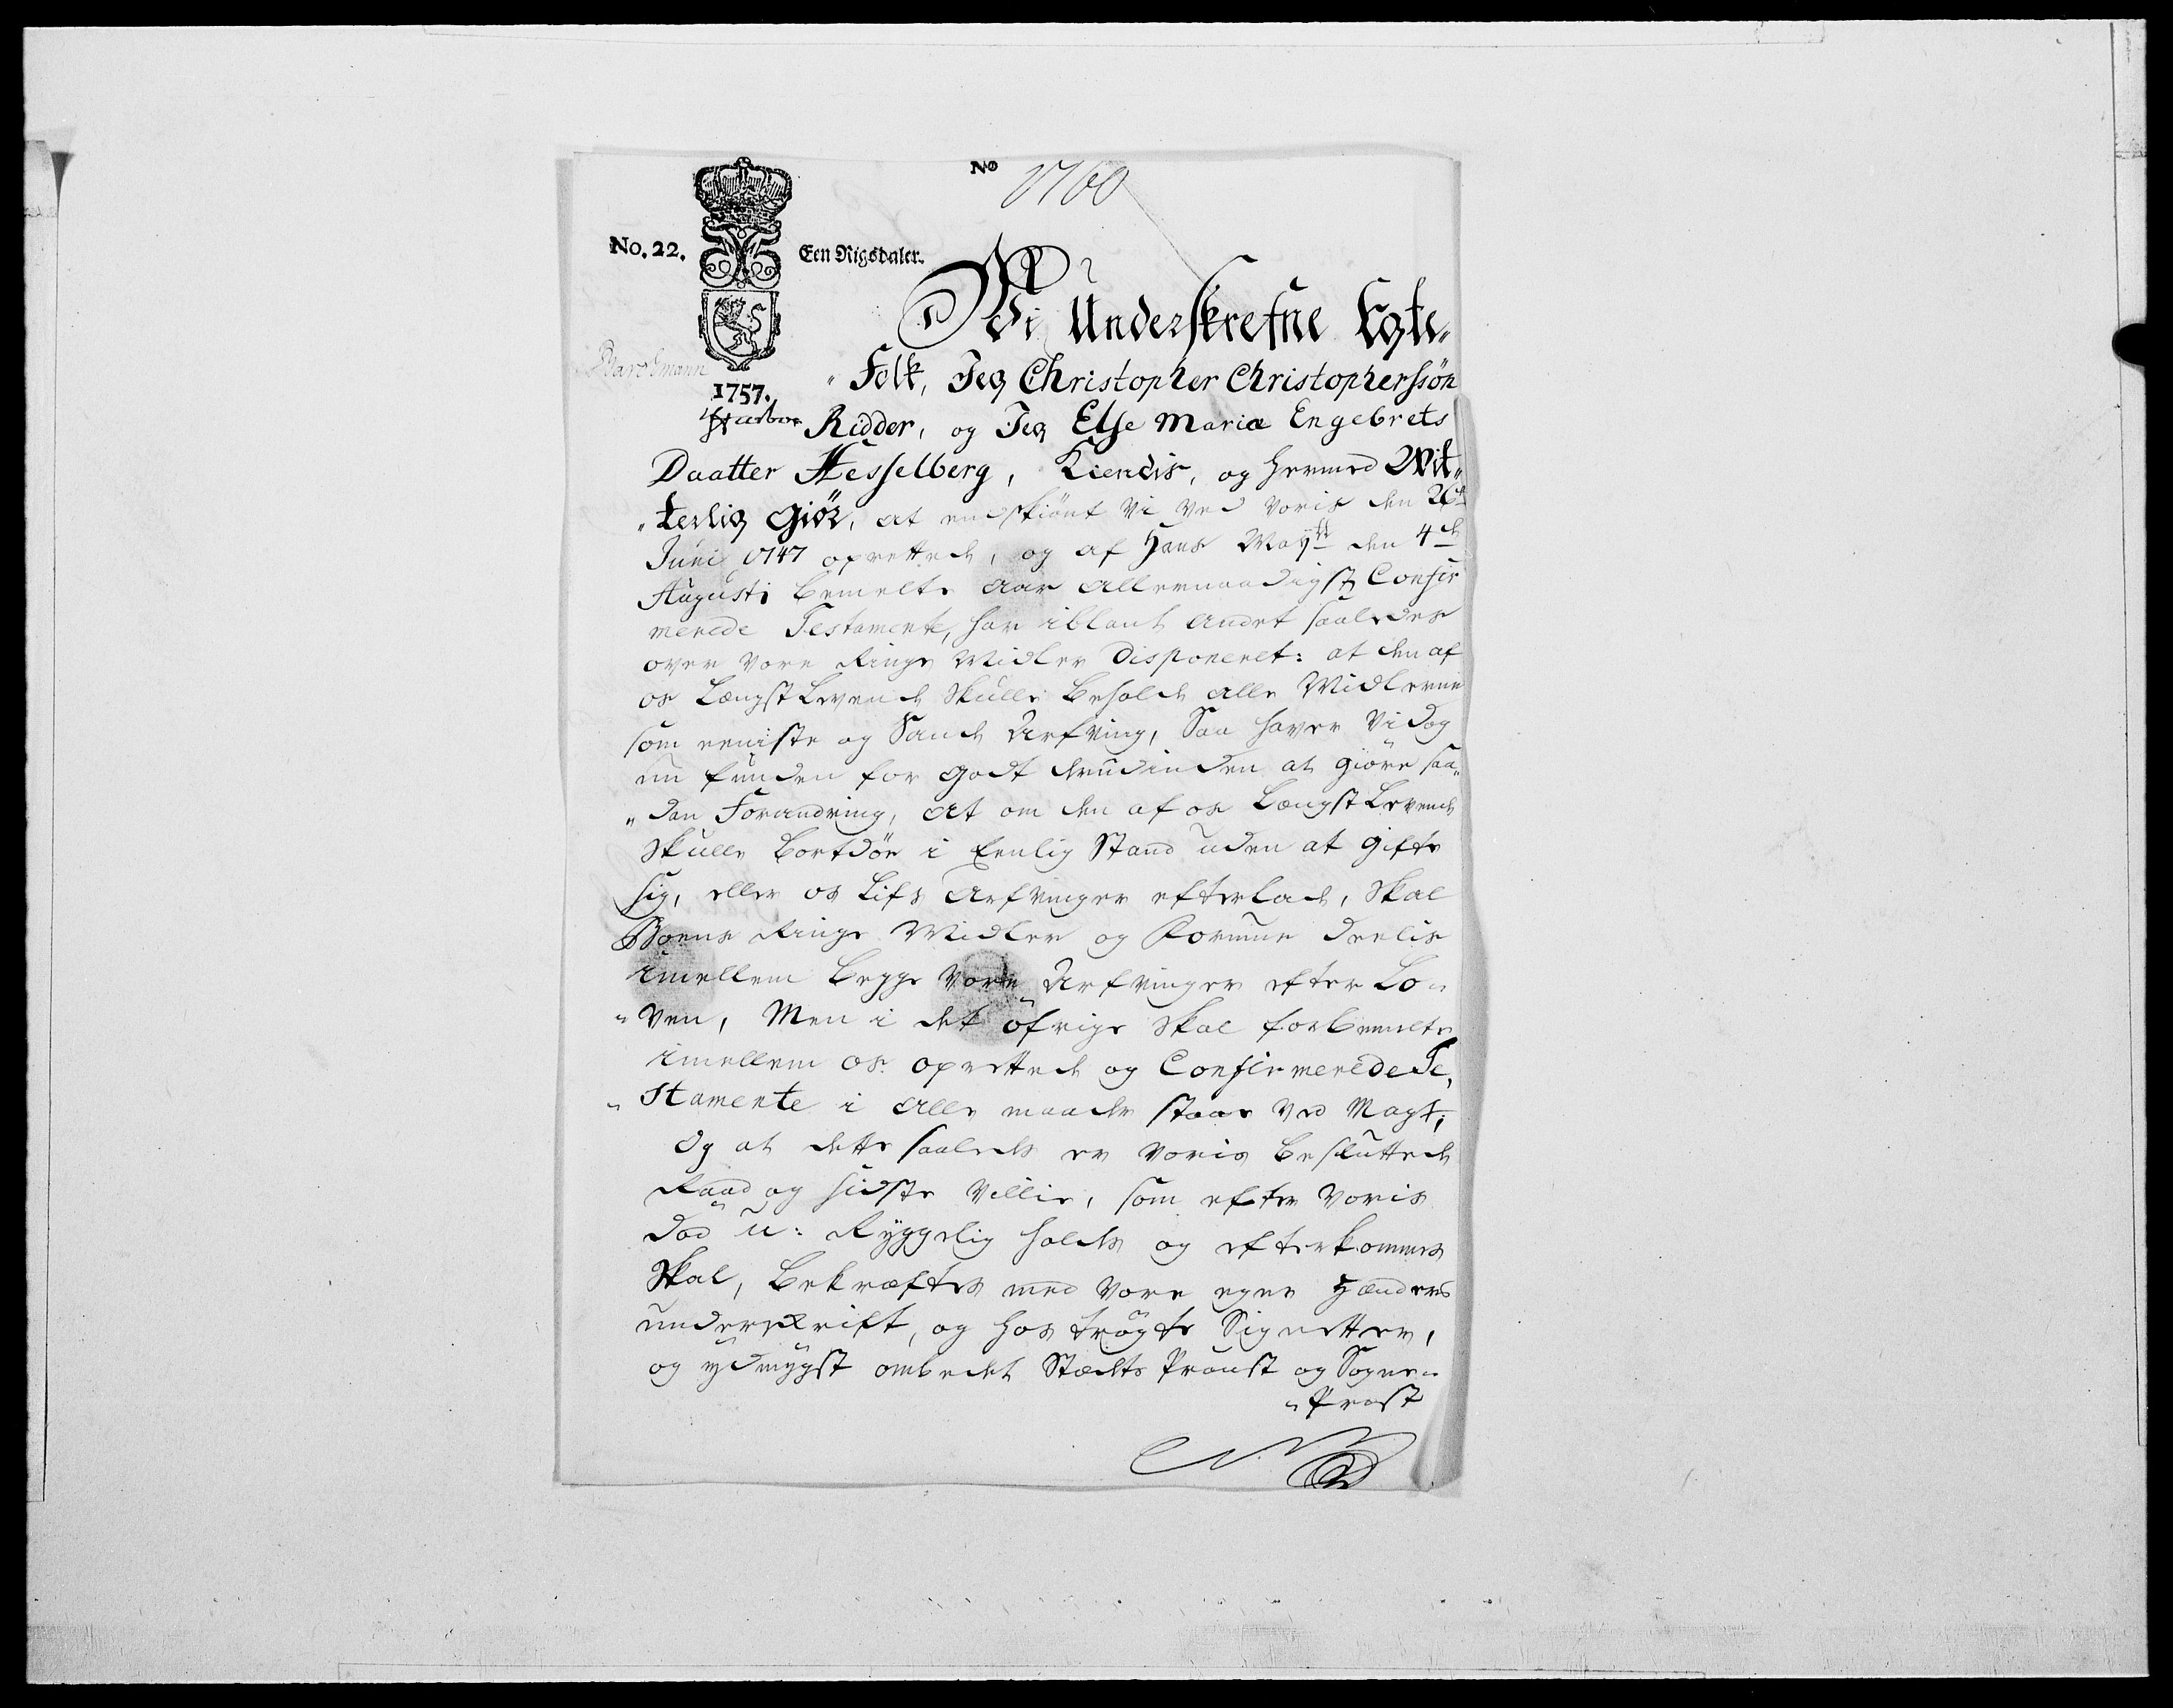 No 1760
No. 22. Een Rigsdaler.
Vi Underskrefne Egte„
1757. „Folk, Jeg Christopher Christopherssøn
Ridder, og Jeg Else Maria Engebrets
Daatter Hesselberg, Kiendis, og hermed Wit„
„terlig Giør, at endskiönt Vi ved voris den 26de
Juni 1747 oprettede, og af Hans Mayst den 4de
Augusti bemelte Aar allernaadigst Confir
merede Testamente, har iblant andet saaledes
over vore Ringe Midler Disponeret: at den af
os Længst Levende skulle beholde alle Midlerne
som eeniste og Sande Arfving, Saa haver Vi dog
nu funden for godt derudinden at giøre saa„
„dan Forandring, at om den af os Længst Levende
skulle bortdöe i Eenlig Stand uden at gifte
sig, eller os Lifs Arfvinger efterlade, skal
Boens Ringe Midler og Formue deelis
imellem begge vore Arfvinger efter Lo„
„ven, Men i det öfrige skal forbemelte
imellem os oprettede og Confirmerede Te„
„stamente i alle maade staae ved Magt;
Og at dette saaledes er voris besluttede
Raad og sidste Villie, som efter voris
död u-Ryggelig holdes og efterkommes
skal, bekræftes med vore egne Hænders
underskrift, og hos trögte Signetter,
og ydmygst ombedet Stædets Provst og Sogne„
„Præst